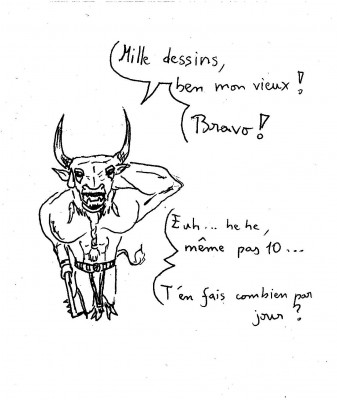 Mille dessins,
ben mon vieux !
Bravo !
Euh... he he,
même pas 10...
T'en fais combien par
jour ?